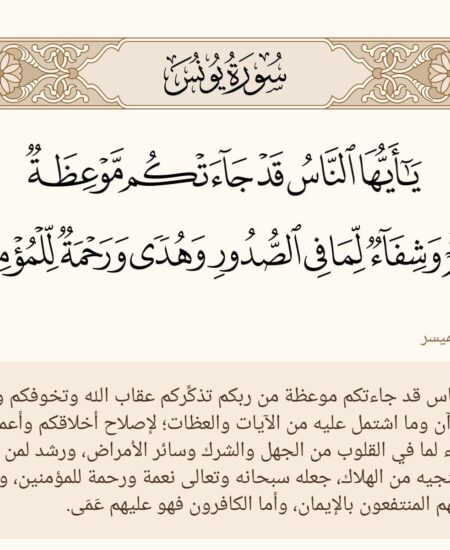 سُورَةُ يُونُسَ
يَٰٓأَيُّهَا ٱلنَّاسُ قَدۡ جَآءَتۡكُم مَّوۡعِظَةٞ
وَشِفَآءٞ لِّمَا فِي ٱلصُّدُورِ وَهُدٗى وَرَحۡمَةٞ لِّلۡمُؤۡمِ
ميسر
اس قد جاءتكم موعظة من ربكم تذكِّركم عقاب الله وتخوفكم و
آن وما اشتمل عليه من الآيات والعظات؛ لإصلاح أخلاقكم وأعم
ء لما في القلوب من الجهل والشرك وسائر الأمراض، ورشد لمن
نجيه من الهلاك، جعله سبحانه وتعالى نعمة ورحمة للمؤمنين، و
هم المنتفعون بالإيمان، وأما الكافرون فهو عليهم عَمَى.